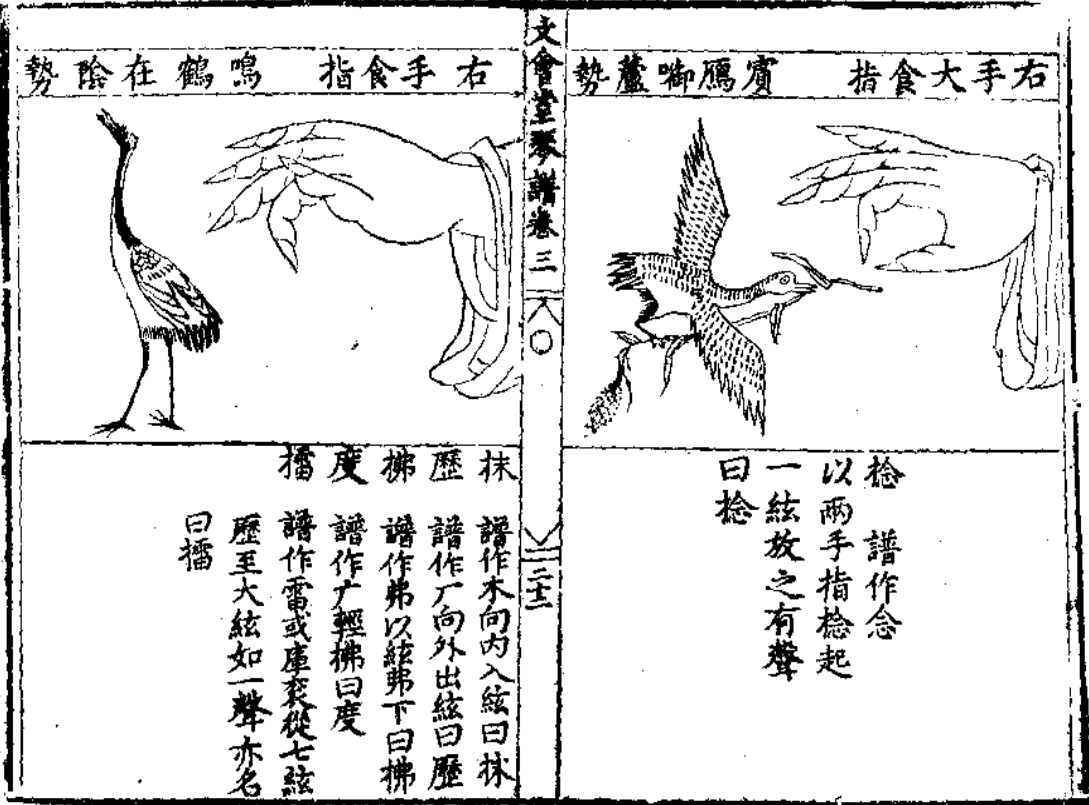 右手大食指　賓鴈啣蘆勢
捻　譜作念
以兩手指捻起
一絃放之有聲
曰捻
文會堂琴譜卷三
二十二
右手食指　鳴鶴在陰勢
抹　譜作木向內入絃曰抹
歷　譜作厂向外出絃曰歷
拂　譜作弗以絃弗下曰拂
度　譜作广輕拂曰度
擂　譜作雷或庫衮從七絃
歷至大絃如一聲亦名
曰擂